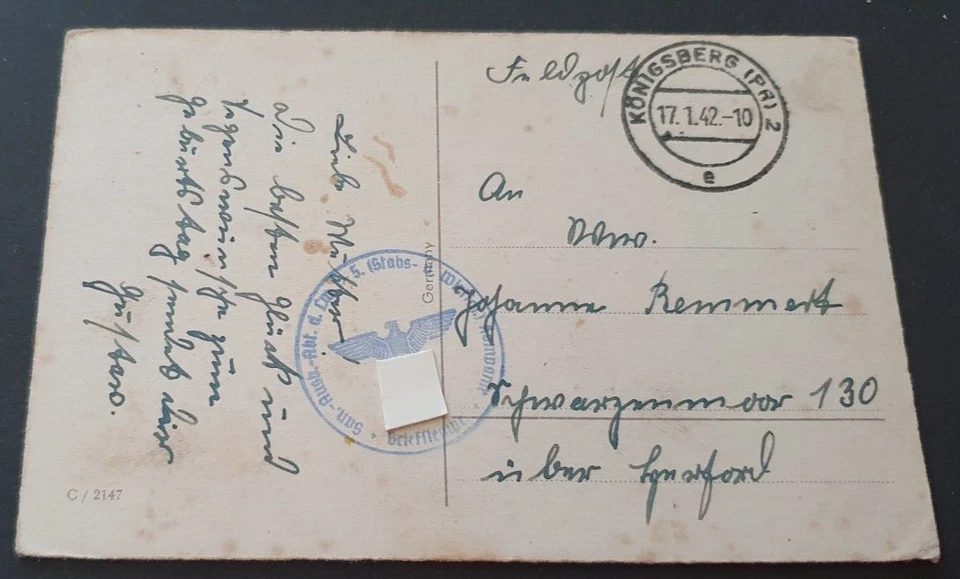 Liebe Mutter!
Die besten Glück und
Segenswünsche zum
Geburtstag sendet dir
Gustav.
C / 2147
Germany
San.-Ausb.-Abt. d. Lw. 5. (Stabs-
Briefstempel
Feldpost
KÖNIGSBERG (PR) 2
17.1.42.-10
e
An
Wwe.
Johanne Remmert
Schwarzenmoor 130
über Herford